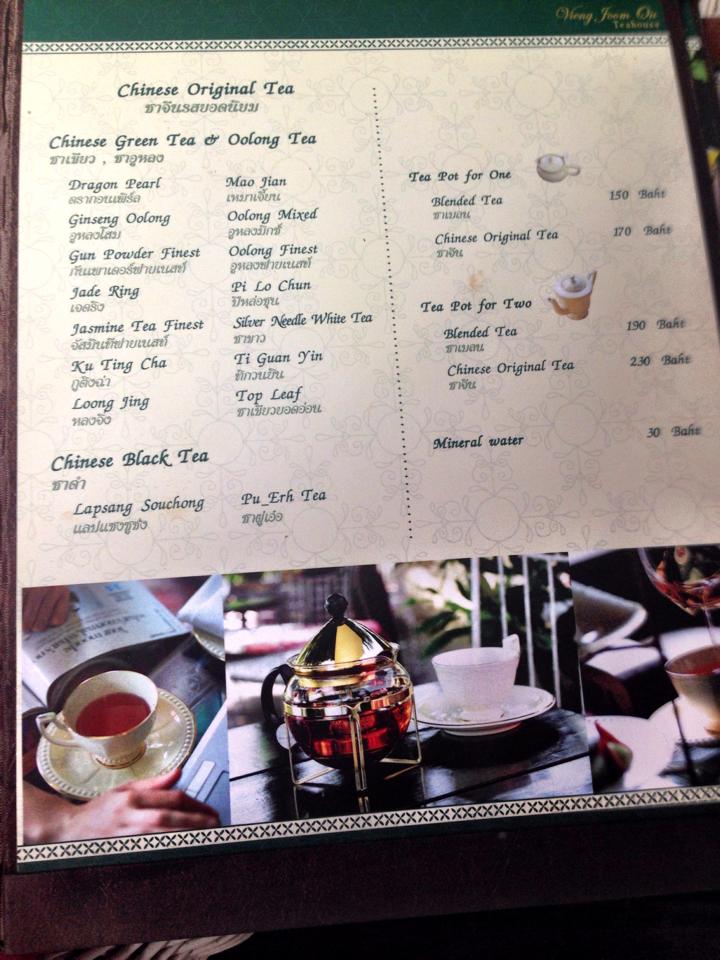 Vieng Joom On
Teahouse
Chinese Original Tea
ชาจีนรสยอดนิยม
Chinese Green Tea & Oolong Tea
ชาเขียว , ชาอูหลง
Dragon Pearl
ดราก้อนเพิร์ล
Ginseng Oolong
อูหลงโสม
Gun Powder Finest
กันเพาเดอร์ฟายเนสท์
Jade Ring
เจดริง
Jasmine Tea Finest
จัสมินทีฟายเนสท์
Ku Ting Cha
กูติงฉ่า
Loong Jing
หลงจิ่ง
Mao Jian
เหมาเจี้ยน
Oolong Mixed
อูหลงมิกซ์
Oolong Finest
อูหลงฟายเนสท์
Pi Lo Chun
ปีหล่อชุน
Silver Needle White Tea
ชาขาว
Ti Guan Yin
ทิกวนยิน
Top Leaf
ชาเขียวยอดอ่อน
Chinese Black Tea
ชาดำ
Lapsang Souchong
แลปแซงซูชง
Pu_Erh Tea
ชาผูเอ๋อ
Tea Pot for One
Blended Tea 150 Baht
ชาเบลน
Chinese Original Tea 170 Baht
ชาจีน
Tea Pot for Two
Blended Tea 190 Baht
ชาเบลน
Chinese Original Tea 230 Baht
ชาจีน
Mineral water 30 Baht